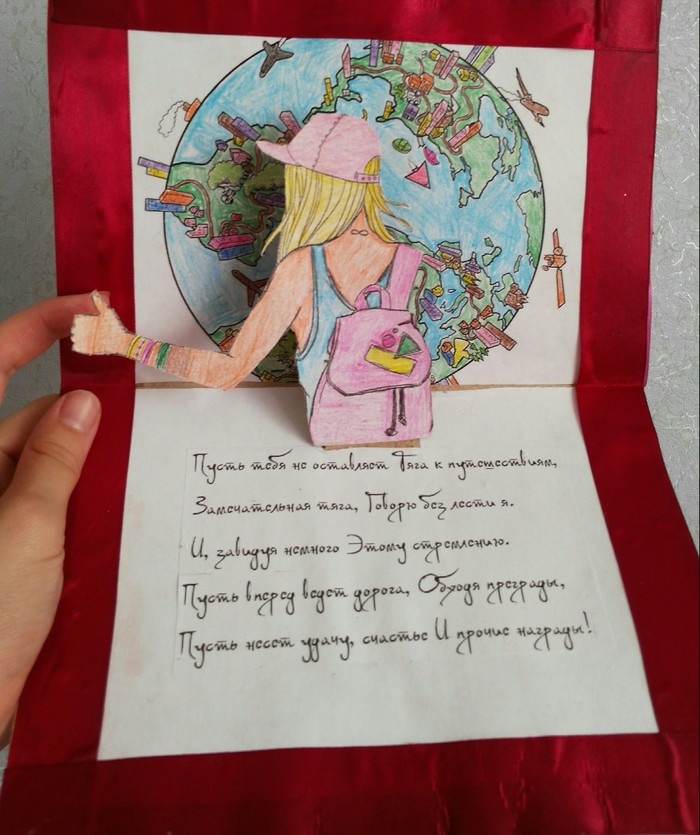 Пусть тебя не оставляет Тяга к путешествиям,
Замечательная тяга, Говорю без лести я.
И, завидуя немного Этому стремлению.
Пусть вперед ведет дорога, Обходя преграды,
Пусть несет удачу, счастье И прочие награды!